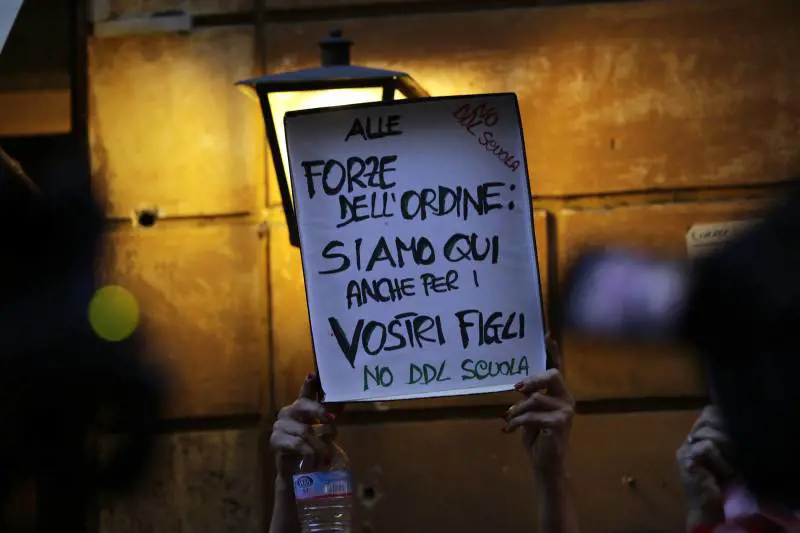 ALLE
NO
DDL SCUOLA
FORZE
DELL'ORDINE:
SIAMO QUI
ANCHE PER I
VOSTRI FIGLI
NO DDL SCUOLA